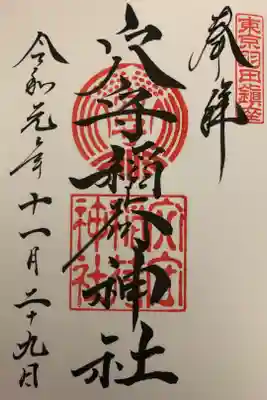 東京羽田鎮座
奉拝
穴守稲荷神社
穴守稲荷神社
令和元年十一月二十九日